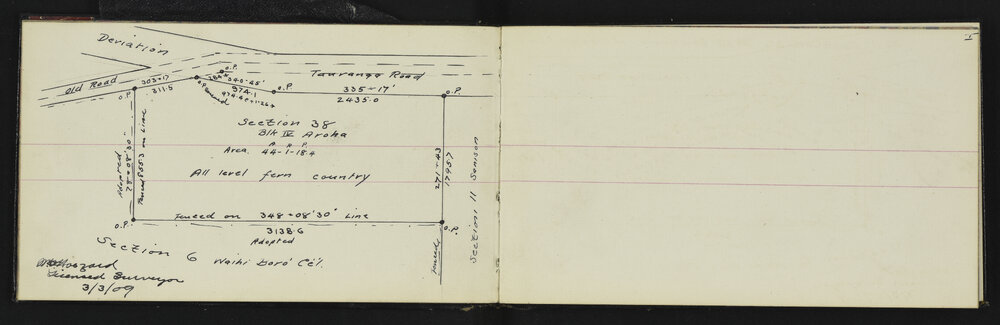 Deviation
Old Road
Tauranga Road
303-17
311.5
O.P.
340-25'
974.1
O.P.
O.P.
335-17'
2435.0
O.P.
O.P.
Section 38
Blk IV Aroha
A R P
Area 44-1-18.4
All level fern country
Adopted
78-08'30"
on Line
271-43
1795.7
Section 11
Fenced on 348-08'30" Line
3138.6
Adopted
O.P.
O.P.
Fenced
Section 6 Waihi Boro' C'l.
Licensed Surveyor
3/3/09
1